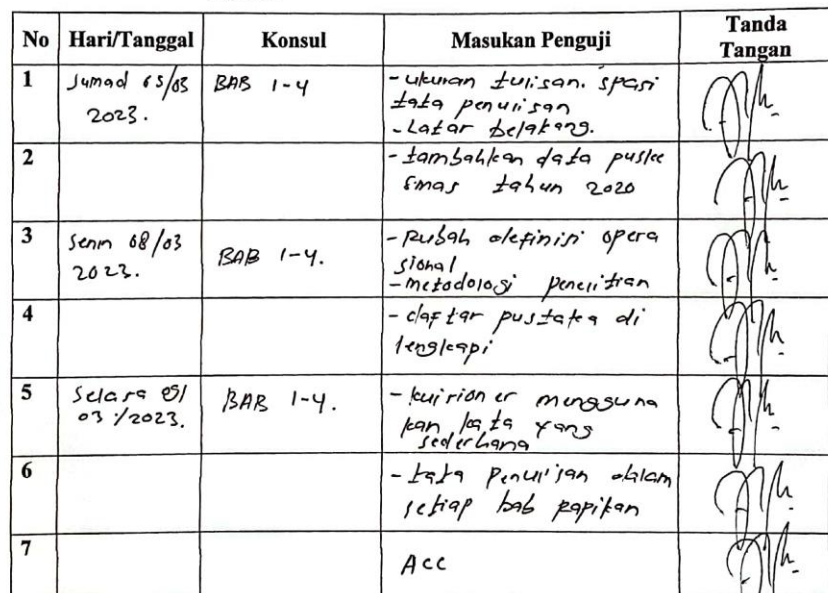 No Hari/Tanggal Konsul Masukan Penguji Tanda Tangan
1 Jumad 05/03 BAB 1-4 - ukuran tulisan. spasi
2023. tata penulisan
- Latar belakang.
2 - tambahkan data puske
smas tahun 2020
3 Senin 08/03 BAB 1-4. - Rubah definisi opera
2023. sional
- metodologi penelitian
4 - daftar pustaka di
lengkapi
5 Selasa 09/ BAB 1-4. - kuisioner mengguna
03/2023. kan kata yang
sederhana
6 - tata penulisan dalam
setiap bab rapikan
7 Acc